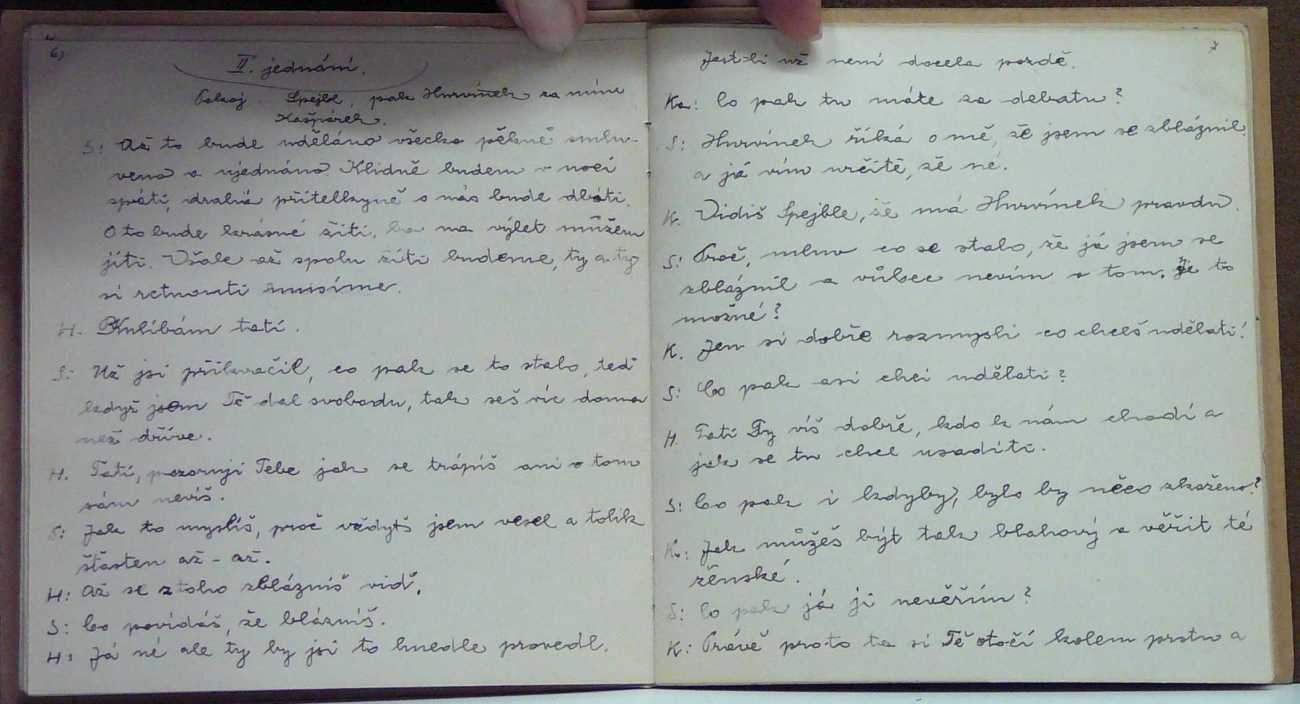 6)
II. jednání.
Pokoj Spejbl, pak Hurvínek za ním
Kašpárek.
S: Až to bude uděláno všecko pěkně smlu-
veno a ujednáno Klidně budem v noci
spáti, drahá přítelkyně o nás bude dbáti.
O to bude krásné žití, na výlet můžem
jíti. Však až spolu žíti budeme, ty a ty
si rctnouti musíme.
H. Rulíbám tatí.
S: Už jsi přikvačil, co pak se to stalo, teď
když jsem Tě dal svobodu, tak seš víc doma
než dříve.
H. Tatí, pozoruji Tebe jak se trápíš ani o tom
sám nevíš.
S: Jak to myslíš, proč vždyť jsem vesel a tolik
šťasten až - až.
H: Až se z toho zblázníš viď.
S: Co povídáš, že blázníš.
H: Já né ale ty by jsi to hnedle provedl.
7
Jest-li už není docela pozdě.
Ka: Co pak tu máte za debatu?
S: Hurvínek říká o mě, že jsem se zbláznil,
a já vím určitě, že né.
K. Vidíš Spejble, že má Hurvínek pravdu.
S: Proč, mluv co se stalo, že já jsem se
zbláznil a vůbec nevím o tom, je to
možné?
K. Jen si dobře rozmysli co chceš udělati!
S: Co pak asi chci udělati?
H. Tatí Ty víš dobře, kdo k nám chodí a
jak se tu chce usaditi.
S: Co pak i kdyby, bylo by něco zkaženo?
K: Jak můžeš být tak bláhový a věřit té
ženské.
S: Co pak já ji nevěřím?
K: Právě proto ta si Tě otočí kolem prstu a